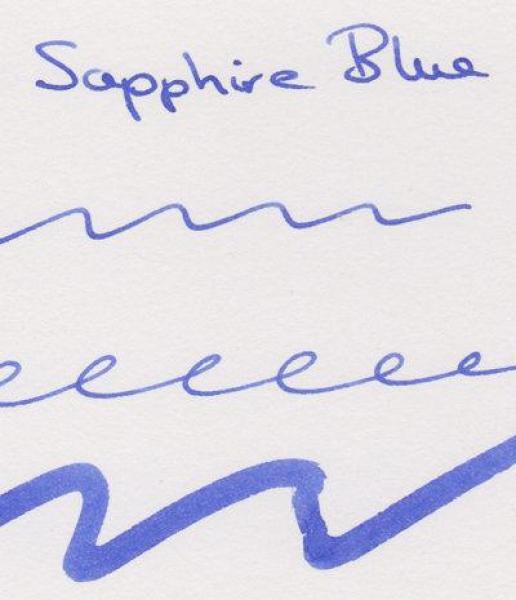 Sapphire Blue